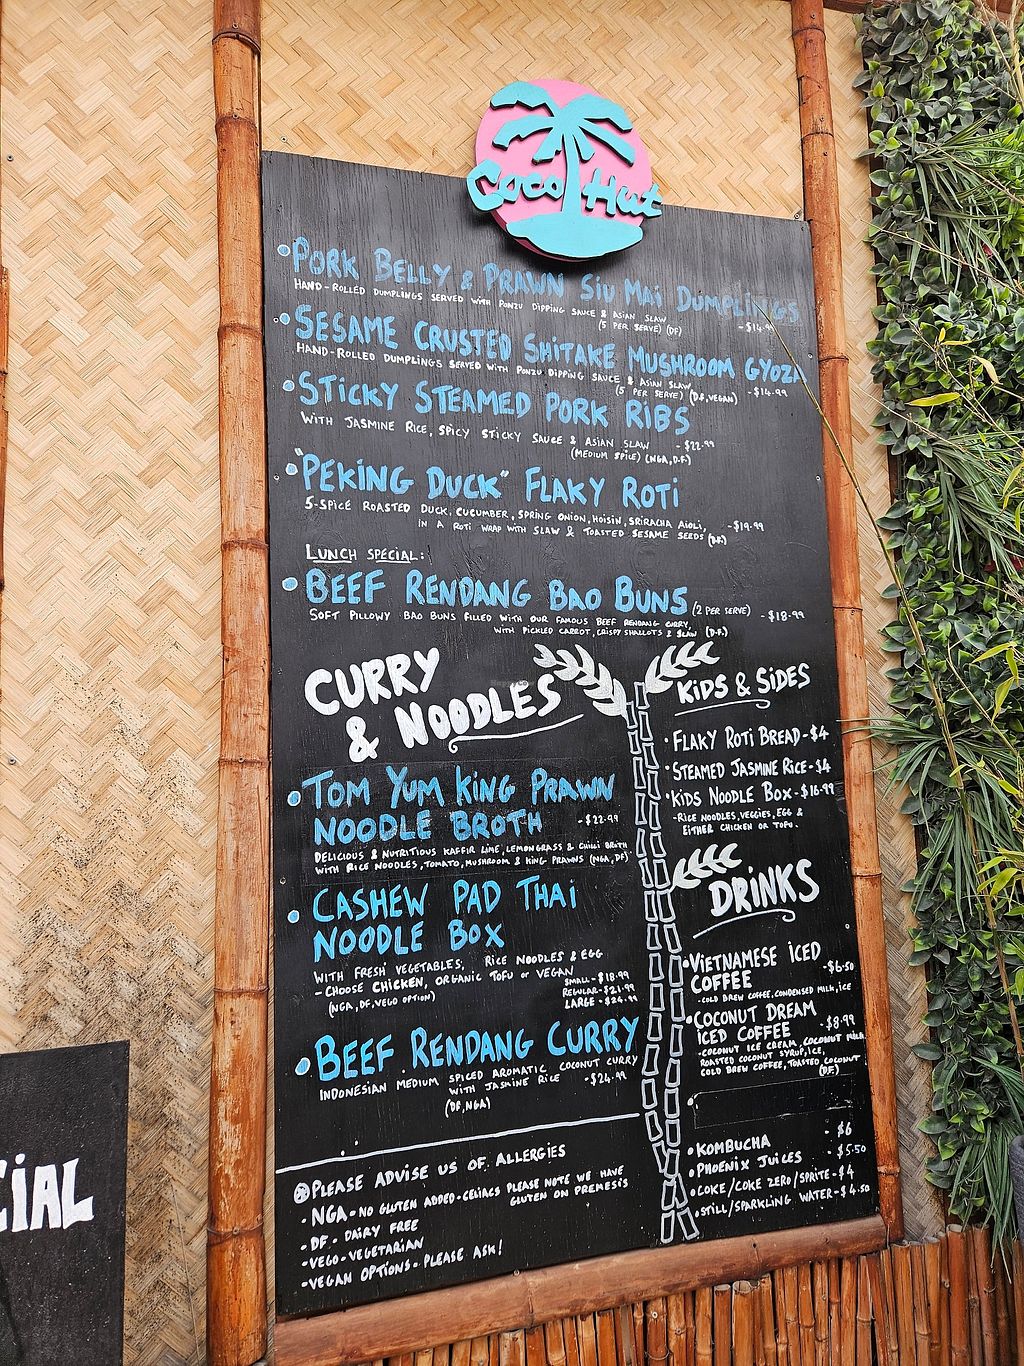 Coco Hut
PORK BELLY & PRAWN SIU MAI DUMPLINGS
HAND-ROLLED DUMPLINGS SERVED WITH PONZU DIPPING SAUCE & ASIAN SLAW
(5 PER SERVE) (DF) -$14.99
SESAME CRUSTED SHITAKE MUSHROOM GYOZA
HAND-ROLLED DUMPLINGS SERVED WITH PONZU DIPPING SAUCE & ASIAN SLAW
(5 PER SERVE) (D.F, VEGAN) -$14.99
STICKY STEAMED PORK RIBS
WITH JASMINE RICE, SPICY STICKY SAUCE & ASIAN SLAW -$22.99
(MEDIUM SPICE) (NGA, D.F.)
"PEKING DUCK" FLAKY ROTI
5-SPICE ROASTED DUCK, CUCUMBER, SPRING ONION, HOISIN, SRIRACHA AIOLI, -$19.99
IN A ROTI WRAP WITH SLAW & TOASTED SESAME SEEDS (D.F.)
LUNCH SPECIAL:
BEEF RENDANG BAO BUNS (2 PER SERVE) -$18.99
SOFT PILLOWY BAO BUNS FILLED WITH OUR FAMOUS BEEF RENDANG CURRY,
WITH PICKLED CARROT, CRISPY SHALLOTS & SLAW (D.F.)
CURRY
& NOODLES
TOM YUM KING PRAWN
NOODLE BROTH -$22.99
DELICIOUS & NUTRITIOUS KAFFIR LIME, LEMONGRASS & CHILLI BROTH
WITH RICE NOODLES, TOMATO, MUSHROOM & KING PRAWNS (NGA, DF)
CASHEW PAD THAI
NOODLE BOX
WITH FRESH VEGETABLES, RICE NOODLES & EGG
- CHOOSE CHICKEN, ORGANIC TOFU or VEGAN
(NGA, DF, VEGO OPTION)
SMALL-$18.99
REGULAR-$21.99
LARGE -$24.99
BEEF RENDANG CURRY
INDONESIAN MEDIUM SPICED AROMATIC COCONUT CURRY
WITH JASMINE RICE -$24.99
(DF, NGA)
PLEASE ADVISE US OF ALLERGIES
- NGA - NO GLUTEN ADDED - CELIACS PLEASE NOTE WE HAVE
GLUTEN ON PREMESIS
- DF - DAIRY FREE
- VEGO - VEGETARIAN
- VEGAN OPTIONS - PLEASE ASK!
KIDS & SIDES
FLAKY ROTI BREAD-$4
STEAMED JASMINE RICE-$4
KIDS NOODLE BOX-$16.99
-RICE NOODLES, VEGGIES, EGG &
EITHER CHICKEN OR TOFU.
DRINKS
VIETNAMESE ICED
COFFEE -$6.50
-COLD BREW COFFEE, CONDENSED MILK, ICE
COCONUT DREAM
ICED COFFEE -$8.99
-COCONUT ICE CREAM, COCONUT MILK,
ROASTED COCONUT SYRUP, ICE,
COLD BREW COFFEE, TOASTED COCONUT
(D.F.)
KOMBUCHA - $6
PHOENIX JUICES - $5.50
COKE/COKE ZERO/SPRITE-$4
STILL/SPARKLING WATER-$4.50
CIAL